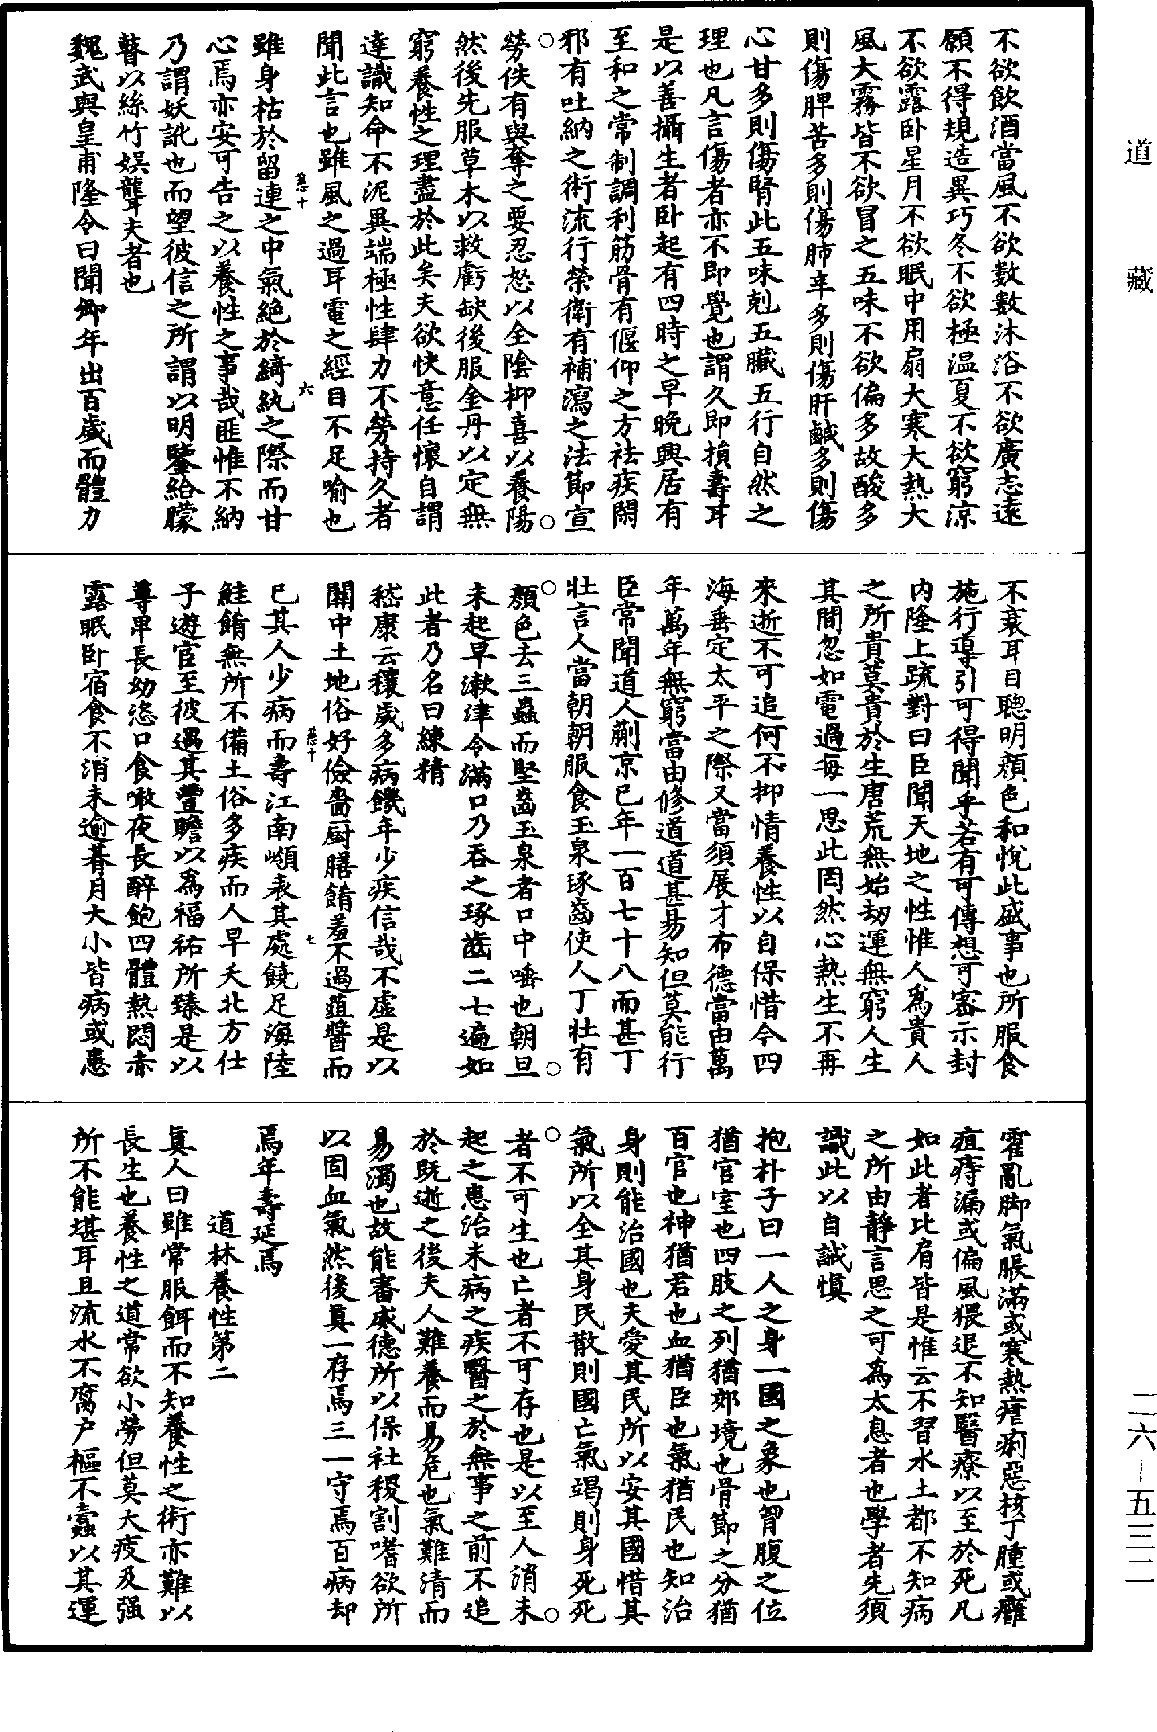 道藏
不欲飲酒當風不欲數數沐浴不欲廣志遠
願不得規造異巧冬不欲極溫夏不欲窮涼
不欲露卧星月不欲眠中用扇大寒大熱大
風大霧皆不欲冒之五味不欲偏多故酸多
則傷脾苦多則傷肺辛多則傷肝鹹多則傷
心甘多則傷腎此五味剋五臟五行自然之
理也凡言傷者亦不即覺也謂久即損壽耳
是以善攝生者卧起有四時之早晚興居有
至和之常制調利筋骨有偃仰之方祛疾閑
邪有吐納之術流行榮衛有補瀉之法節宣
勞佚有與奪之要忍怒以全陰抑喜以養陽
然後先服草木以救虧缺後服金丹以定無
窮養性之理盡於此矣夫欲快意任懷自謂
達識知命不泥異端極性肆力不勞持久者
聞此言也雖風之過耳電之經目不足喻也
雖身枯於留連之中氣絕於綺紈之際而甘
心焉亦安可告之以養性之事哉匪惟不納
乃謂妖訛也而望彼信之所謂以明鑒給矇
瞽以絲竹娛聾夫者也
魏武與皇甫隆令曰聞卿年出百歲而體力
不衰耳目聰明顏色和悅此盛事也所服食
施行導引可得聞乎若有可傳想可密示封
內隆上疏對曰臣聞天地之性惟人為貴人
之所貴莫貴於生唐荒無始劫運無窮人生
其間忽如電過每一思此罔然心熱生不再
來逝不可追何不抑情養性以自保惜今四
海垂定太平之際又當須展才布德當由萬
年萬年無窮當由修道道甚易知但莫能行
臣常聞道人蒯京已年一百七十八而甚丁
壯言人當朝朝服食玉泉琢齒使人丁壯有
顏色去三蟲而堅齒玉泉者口中唾也朝旦
未起早漱津令滿口乃吞之琢齒二七遍如
此者乃名曰練精
嵇康云穰歲多病饑年少疾信哉不虛是以
關中土地俗好儉嗇厨膳餚羞不過葅醬而
已其人少病而壽江南嶺表其處饒足海陸
鮭餚無所不備土俗多疾而人早夭北方仕
子遊官至彼遇其豐贍以為福祐所臻是以
尊卑長幼恣口食噉夜長醉飽四體熱悶赤
露眠卧宿食不消未逾朞月大小皆病或患
霍亂脚氣脹滿或寒熱瘧痢惡核丁腫或癰
疽痔漏或偏風猥退不知醫療以至於死凡
如此者比肩皆是惟云不習水土都不知病
之所由靜言思之可為太息者也學者先須
識此以自誡慎
抱朴子曰一人之身一國之象也胷腹之位
猶宮室也四肢之列猶郊境也骨節之分猶
百官也神猶君也血猶臣也氣猶民也知治
身則能治國也夫愛其民所以安其國惜其
氣所以全其身民散則國亡氣竭則身死死
者不可生也亡者不可存也是以至人消未
起之患治未病之疾醫之於無事之前不追
於既逝之後夫人難養而易危也氣難清而
易濁也故能審威德所以保社稷割嗜欲所
以固血氣然後真一存焉三一守焉百病却
焉年壽延焉
道林養性第二
真人曰雖常服餌而不知養性之術亦難以
長生也養性之道常欲小勞但莫大疲及强
所不能堪耳且流水不腐户樞不蠹以其運
二六-五三二